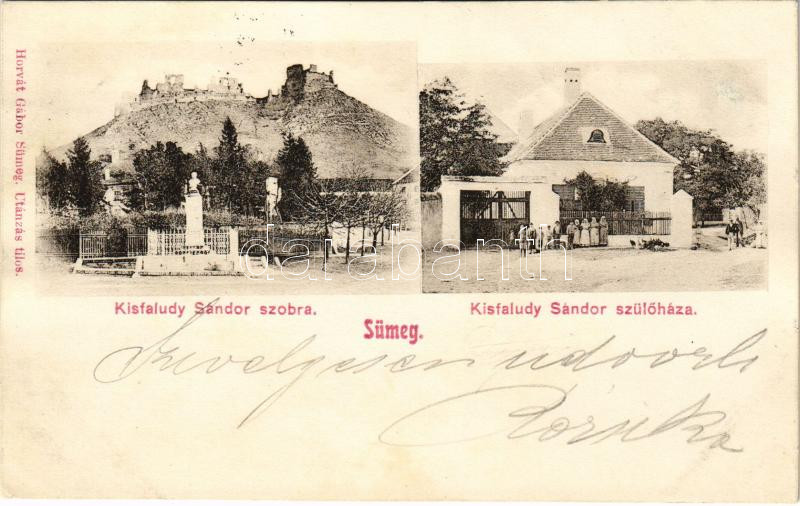 Horvát Gábor Sümeg. Utánzás tilos.
Kisfaludy Sándor szobra.
Kisfaludy Sándor szülőháza.
Sümeg.
Szivélyesen üdvözli
Rózsika
darabanth